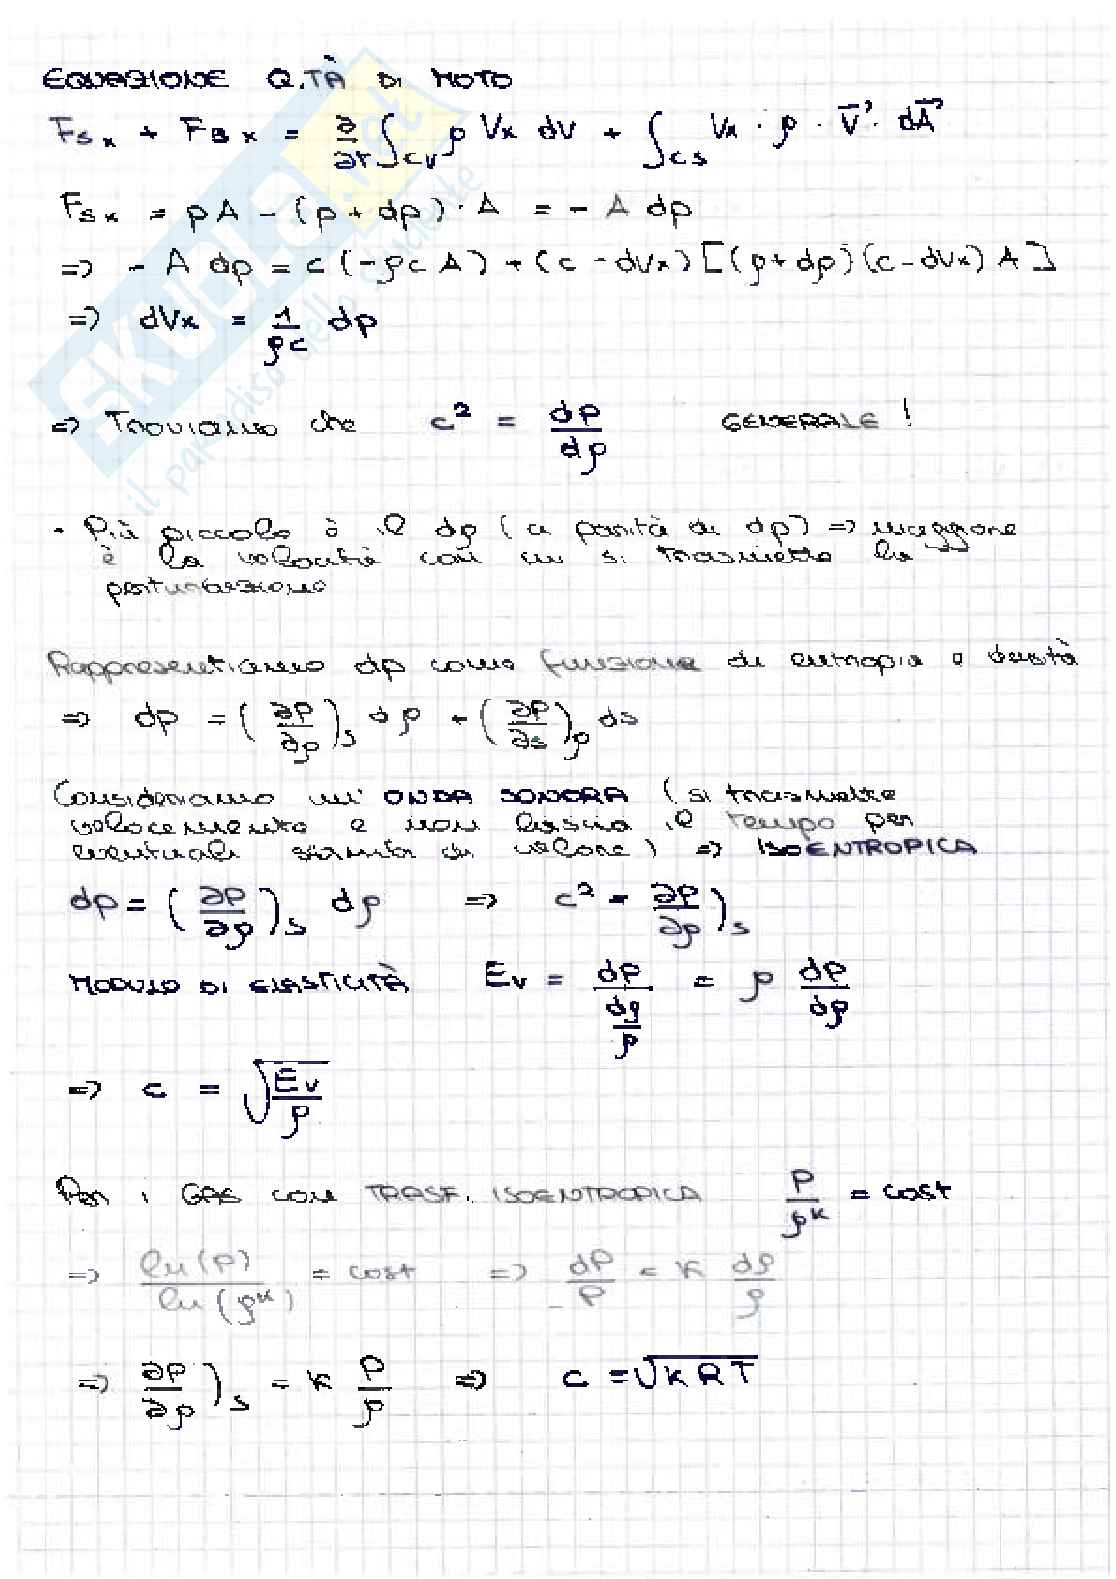 EQUAZIONE Q.TÀ DI MOTO
Fsx + FBx = ∂/∂t ∫cv ρ Vx dV + ∫cs Vx · ρ · V⃗ · dA⃗
Fsx = pA - (p + dp) · A = - A dp
=> - A dp = c (-ρcA) + (c - dVx) [(ρ + dρ)(c - dVx) A]
=> dVx = 1/ρc dp
=> Troviamo che c² = dp/dρ GENERALE !
- Più piccolo è il dρ (a parità di dp) => maggiore
è la velocità con cui si trasmette la
perturbazione
Rappresentiamo dp come funzione di entropia e densità
=> dp = (∂p/∂ρ)s dρ + (∂p/∂s)ρ ds
Consideriamo un' ONDA SONORA (si trasmette
velocemente e non lascia il tempo per
eventuali scambi di calore) => ISOENTROPICA
dp = (∂p/∂ρ)s dρ => c² = ∂p/∂ρ)s
MODULO DI ELASTICITÀ Ev = dp/(dρ/ρ) = ρ dp/dρ
=> c = √(Ev/ρ)
Per i GAS con TRASF. ISOENTROPICA P/ρᵏ = cost
=> ln(P)/ln(ρᵏ) = cost => dP/P = K dρ/ρ
=> ∂p/∂ρ)s = K P/ρ => c = √KRT
SKUOLA.net
il paradiso dello studente